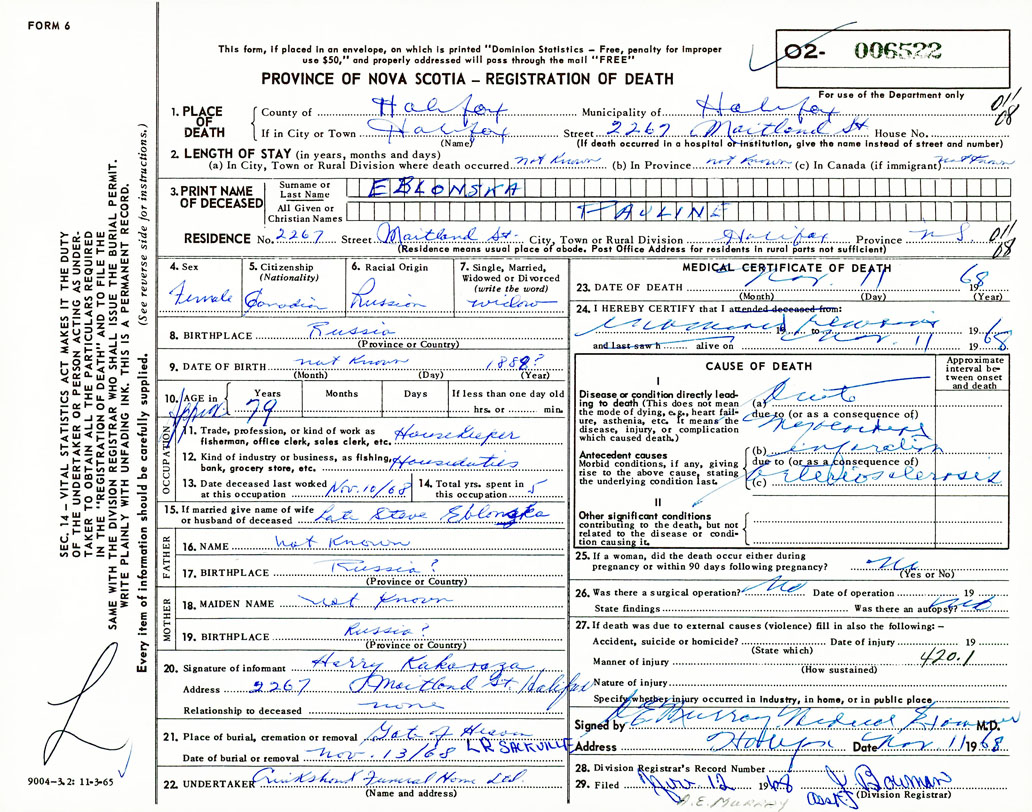 FORM 6
This form, if placed in an envelope, on which is printed "Dominion Statistics – Free, penalty for improper
use $50," and properly addressed will pass through the mail "FREE"
PROVINCE OF NOVA SCOTIA – REGISTRATION OF DEATH
02- 006522
For use of the Department only
011
08
1. PLACE OF DEATH
County of Halifax Municipality of Halifax
If in City or Town Halifax Street 2267 Maitland St. House No.
(Name) (If death occurred in a hospital or institution, give the name instead of street and number)
2. LENGTH OF STAY (in years, months and days)
(a) In City, Town or Rural Division where death occurred not Known (b) In Province not Known (c) In Canada (if immigrant) not Known
3. PRINT NAME OF DECEASED
Surname or Last Name EBLONSKA
All Given or Christian Names PAULINE
RESIDENCE No. 2267 Street Maitland St. City, Town or Rural Division Halifax Province N.S.
(Residence means usual place of abode. Post Office Address for residents in rural parts not sufficient)
011
08
4. Sex
Female
5. Citizenship
(Nationality)
Canadian
6. Racial Origin
Russian
7. Single, Married,
Widowed or Divorced
(write the word)
widow
8. BIRTHPLACE Russia
(Province or Country)
9. DATE OF BIRTH not Known 1889?
(Month) (Day) (Year)
10. AGE in Years Months Days If less than one day old
approx 79 hrs. or min.
OCCUPATION
11. Trade, profession, or kind of work as
fisherman, office clerk, sales clerk, etc. Housekeeper
12. Kind of industry or business, as fishing,
bank, grocery store, etc. Houseduties
13. Date deceased last worked
at this occupation Nov. 10/68
14. Total yrs. spent in
this occupation 5
15. If married give name of wife
or husband of deceased Late Steve Eblonska
FATHER
16. NAME Not Known
17. BIRTHPLACE Russia?
(Province or Country)
MOTHER
18. MAIDEN NAME not Known
19. BIRTHPLACE Russia?
(Province or Country)
20. Signature of informant Harry
Address 2267 Maitland St. Halifax
Relationship to deceased none
21. Place of burial, cremation or removal Gate of Heaven
Date of burial or removal Nov. 13/68 LR SACKVILLE
22. UNDERTAKER Cruikshank Funeral Home Ltd.
(Name and address)
MEDICAL CERTIFICATE OF DEATH
23. DATE OF DEATH Nov. 11 1968
(Month) (Day) (Year)
24. I HEREBY CERTIFY that I attended deceased from:
19 to 19
and last saw h alive on Nov. 11 1968
CAUSE OF DEATH
Approximate
interval be-
tween onset
and death
I
Disease or condition directly lead-
ing to death (This does not mean
the mode of dying, e.g., heart fail-
ure, asthenia, etc. It means the
disease, injury, or complication
which caused death.)
(a) Acute
due to (or as a consequence of)
Myocardial
Antecedent causes
Morbid conditions, if any, giving
rise to the above cause, stating
the underlying condition last.
(b) infarction
due to (or as a consequence of)
(c) arteriosclerosis
II
Other significant conditions
contributing to the death, but not
related to the disease or condi-
tion causing it.
25. If a woman, did the death occur either during
pregnancy or within 90 days following pregnancy? No
(Yes or No)
26. Was there a surgical operation? No Date of operation 19
State findings Was there an autopsy? No
27. If death was due to external causes (violence) fill in also the following: –
Accident, suicide or homicide? Date of injury 19
(State which)
Manner of injury 420.1
(How sustained)
Nature of injury
Specify whether injury occurred in Industry, in home, or in public place
Signed by Murray Medical Examiner M.D.
Address Halifax Date Nov. 11 1968
28. Division Registrar's Record Number
29. Filed Nov 12 1968 J Bowman
(Division Registrar)
A.E. MURRAY asst.
SEC. 14 – VITAL STATISTICS ACT MAKES IT THE DUTY
OF THE UNDERTAKER OR PERSON ACTING AS UNDER-
TAKER TO OBTAIN ALL THE PARTICULARS REQUIRED
IN THE "REGISTRATION OF DEATH" AND TO FILE THE
SAME WITH THE DIVISION REGISTRAR WHO SHALL ISSUE THE BURIAL PERMIT.
WRITE PLAINLY WITH UNFADING INK. THIS IS A PERMANENT RECORD.
Every item of information should be carefully supplied. (See reverse side for instructions.)
9004-3.2: 11-3-65